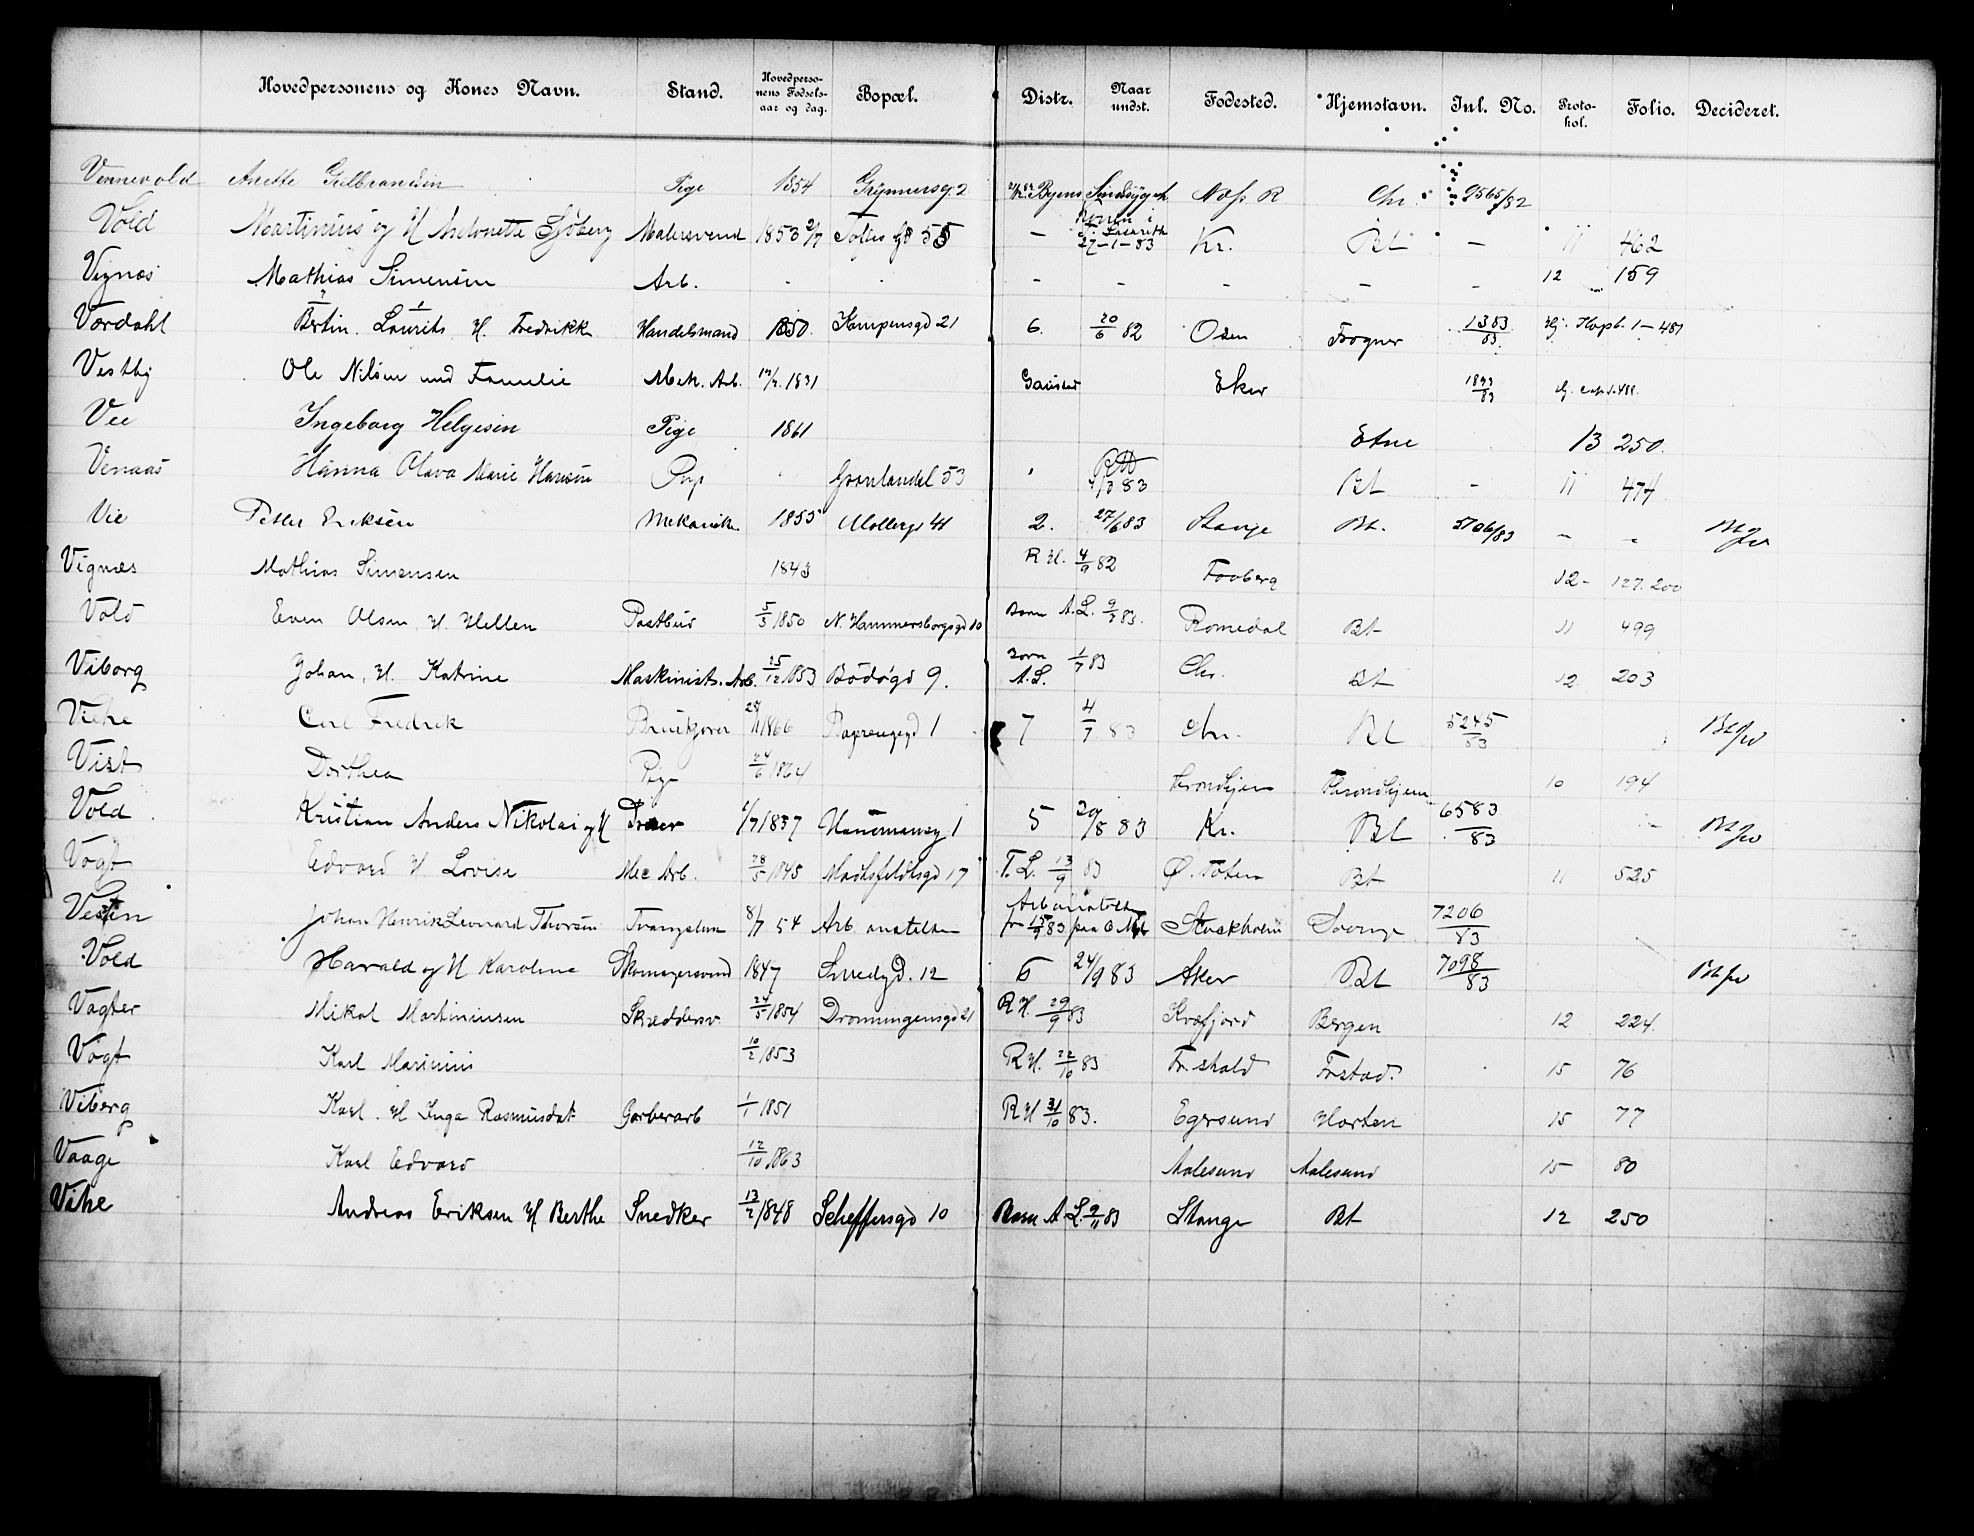 Hovedpersonens og Kones Navn. Stand. Hovedpersonens Fødselsaar og dag. Bopæl. Distr. Naar undst. Fødested. Hjemstavn. Inl. No. Protokol. Folio. Decideret.
Vennevold Anette Gulbrandsen Pige 1854 2 Byens Sindssygeh. Næs. R Chr. 9565/82
Vold Martinius og H Antonette Sjøberg Malersvend 1853 2/7 Toftes gd 55 — 27-1-83 Kr. Bt — 11 462
Vignæs Mathias Simensen Arb. - - - - - 12 159
Værdahl Bertin Laurits H. Fredrikke Handelsmand 1850. Kampensgd 21 6. 20/6 82 Osen Fogner 1383/83 1-481
Vestby Ole Nilsen med Familie Mek. Arb. 1831 Gaustad Eker 1893/83
Vee Ingeborg Helgesen Pige 1861 Etne 13 250.
Venaas Hanna Olava Marie Hansen Pige Grønlandsl 53 83 Bt - 11 474
Vie Petter Eriksen Mekanik 1855 Møllergd 41 2. 27/6 83 Stange Bt. 5706/83 - -
Vignæs Mathias Simensen 1843 R H. 4/9 82 Faaberg 12- 127. 200
Vold Even Olsen H. Hellen Postbud 5/5 1850 N. Hammersborgsgd 10 Barn A.L. 9/7 83. Romedal Bt 11 499
Viborg Johan, H. Katrine Maskinist. Arb. 25/12 1853 Bodøgd 9. Barn A.L. 1/7 83 Chr. Bt 12 203
Viche Carl Fredrik 28/11 1866 1 7 4/7 83 Chr. Bt 5245/83
Vist Dorthea Pige 24/6 1864 Throndhjem Throndhjem 10 194
Vold Kristian Anders Nikolai og H 1/7 1837 1 5 29/8 83 Kr. Bt 6583/83
Vogt Edvard H Lovise Mec Arb. 28/5 1845 17 T.L. 13/9 83 Ø. Toten Bt 11 525
Vestin Johan Henrik Leonard Thorsen 8/7 54 Arb. anstalten Arb anstalten 83 paa 6 Mdr Stockholm Sverige 7206/83
Vold Harald og H Karoline Skomagersvend 1847 Smedgd. 12 6 24/9 83 Aker Bt 7098/83
Vagter Mikal Martiniusen Skræddersv. 24/5 1854 Dronningensgd 21 R H. 29/9 83 Kvæfjord Bergen 12 224.
Vogt Karl Marinius 10/2 1853 R H. 22/10 83 Fr.shald Fr.stad. 15 76
Viberg Karl. H Inga Rasmusdat Garberarb 1/1 1851 R H 31/10 83. Egersund Horten 15 77
Vaage Karl Edvard 12/10 1863 Aalesund Aalesund 15 80
Vihe Andreas Eriksen H Berthe Snedker 13/2 1848 Scheffersgd 10 Barn A.L. 9/11 83 Stange Bt 12 250